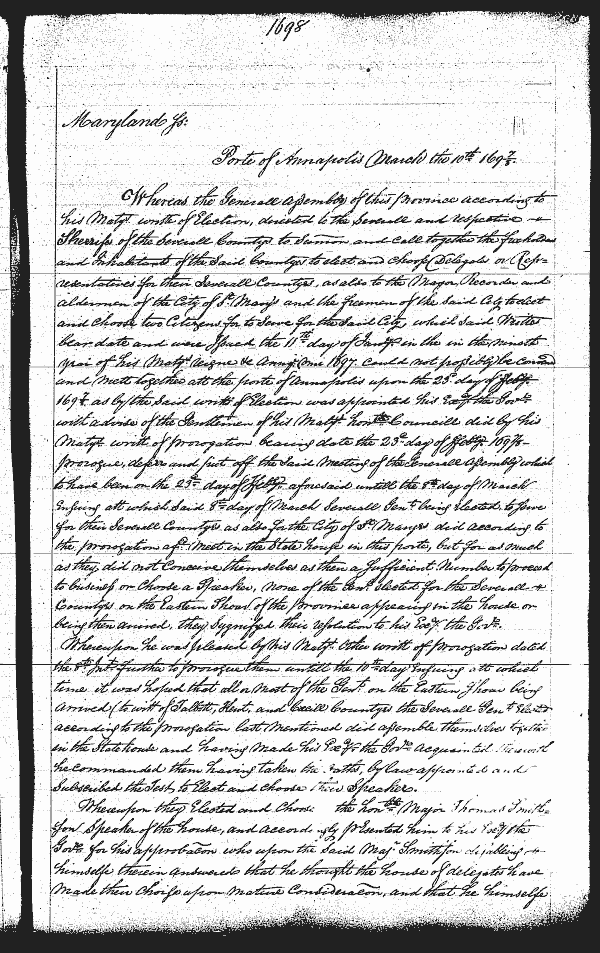 1698
Maryland ss:
Porte of Annapolis March the 10th 1697/8
Whereas the Generall Assembly of this Province according to
his Matys writt of Election, directed to the Severall and respective
Sherriffs of the Severall Countys to Sumon and call together the freeholders
and Inhabitants of the Said Countys to elect and choose Delegates or Repre-
resentatives for their Severall Countys, as also to the Mayor, Recorder and
aldermen of the City of St Marys and the freemen of the Said City to elect
and choose two Citizens for to Serve for the Said City, which Said Writts
bear date and were issued the 11th day of in the in the nineth
year of his Matys reigne &c Annoq Dmi 1697. Could not possibly be
and mett together att the porte of Annapolis upon the 23d day of Febry
1697/8 as by the Said writt of Election was appointed his Exy the Govr
with advise of the Gentlemen of his Matys honble Councill did by his
Matys writt of prorogation bearing date the 23d day of Febry 1697/8
prorogue, deferr and put off the Said Meeting of the Generall Assembly which
to have been on the 23d day of Febry aforesaid untill the 8th day of March
Ensuing att which Said 8th day of March Severall Gent being elected to serve
for their Severall Countys as also for the City of St Marys did according to
the prorogation afd Meet in the State house in this porte, but for as much
as they did not Conceive themselves as then a Sufficient Number to proceed
to business or Choose a Speaker, none of the Gent elected for the Severall
Countys on the Eastern Shoar of the Province appearing in the house or
being then arrived, they Sygnifyed their resolution to his Exy the Govr.
Whereupon he was pleased by his Matys Other writt of Prorogation dated
the 8th Inst further to prorogue them untill the 10th day Ensuing att which
time it was hoped that all or Most of the Gent on the Eastern Shoar being
arrived (to witt of Talbott, Kent, and Cecill Countys the Severall Gent Elected
according to the prorogation last Mentioned did assemble themselves together
in the State house and having made his Exy the Govr acquainted therewith
he commanded them having taken the Oaths, by law appointed and
Subscribed the Test, to Elect and choose their Speaker.
Whereupon they Elected and Choose the honble Major Thomas Smithe
for Speaker of the house, and accordingly presented him to his Exy the
Govr for his approbacon who upon the Said Majr Smithson disabling
himselfe therein answered that he thought the house of delegates have
made their choise upon mature Consideracon, and that he himselfe